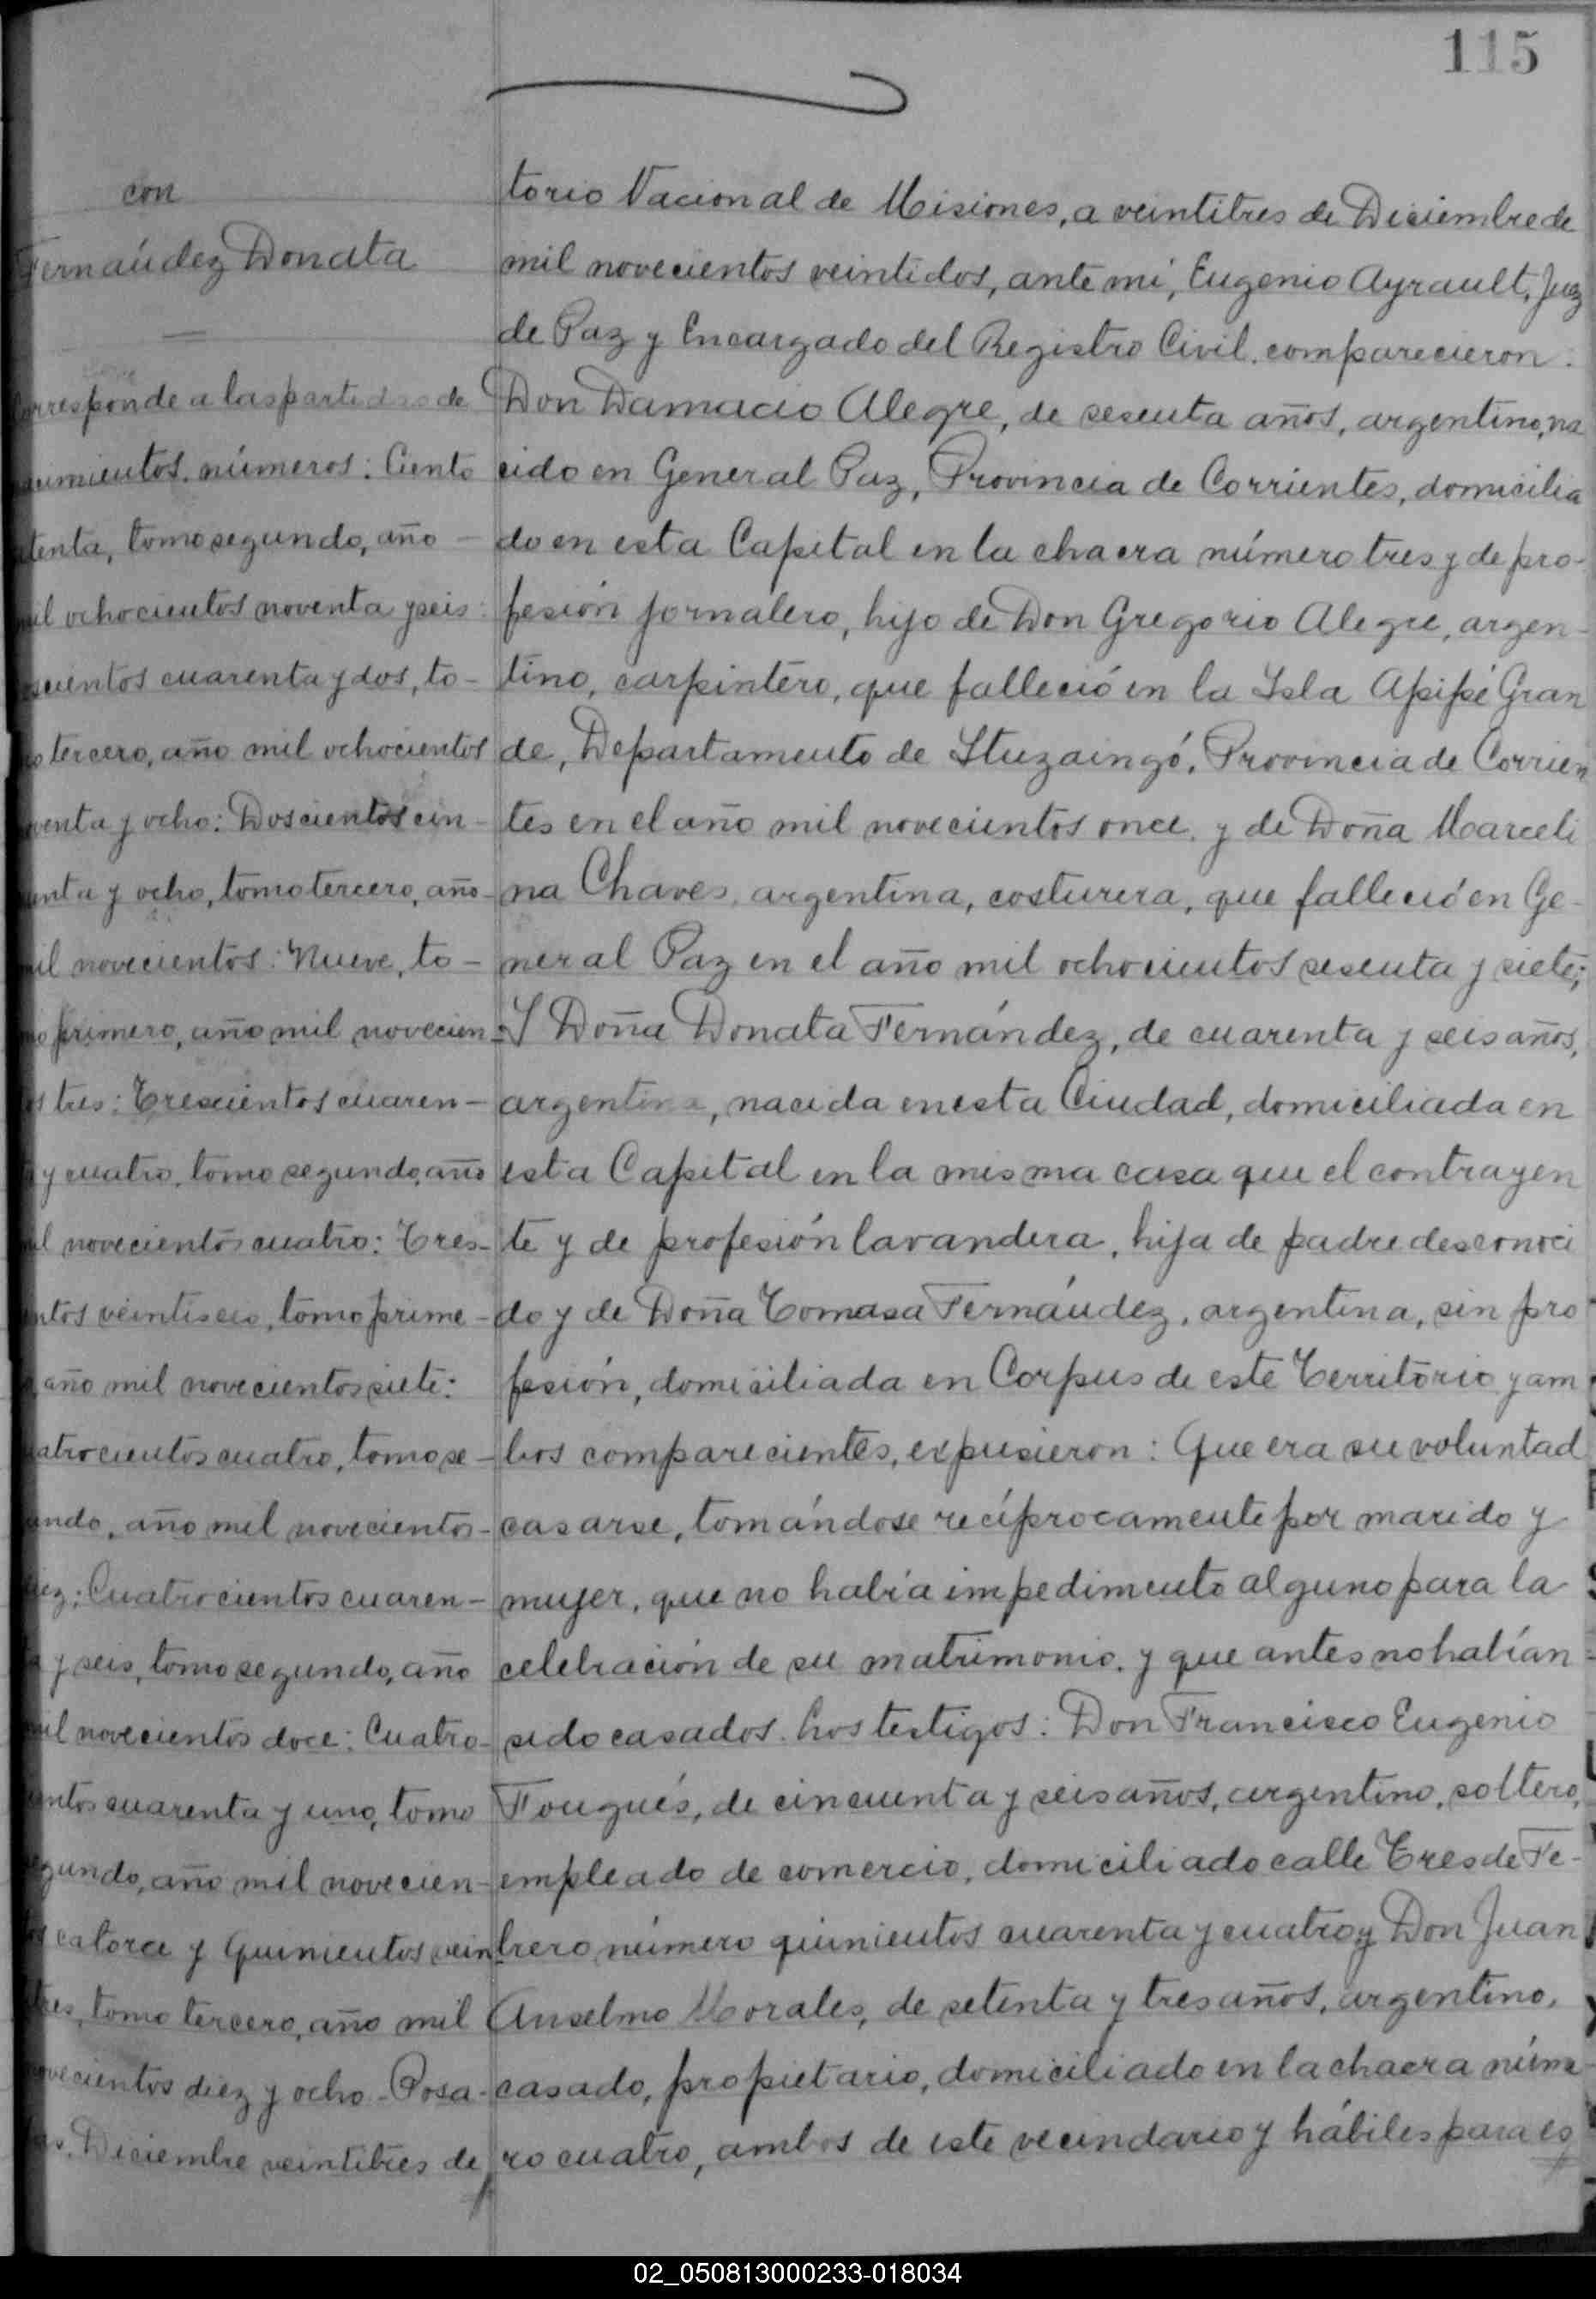 115
con
Fernández Donata
Corresponde a las partidas de
nacimientos, números: Ciento
tenta, tomo segundo, año
mil ochocientos noventa y seis:
scientos cuarenta y dos, to-
mo tercero, año mil ochocientos
noventa y ocho: Doscientos cin-
cuenta y ocho, tomo tercero, año
mil novecientos: Nueve, to-
mo primero, año mil novecien-
tos tres: Trescientos cuaren-
ta y cuatro, tomo segundo, año
mil novecientos cuatro: Tres-
cientos veintiseis, tomo prime-
año mil novecientos siete:
Cuatrocientos cuatro, tomo se-
gundo, año mil novecientos
diez: Cuatrocientos cuaren-
ta y seis, tomo segundo, año
mil novecientos doce: Cuatro-
cientos cuarenta y uno, tomo
segundo, año mil novecien-
tos catorce y Quinientos vein
tres, tomo tercero, año mil
novecientos diez y ocho - Posa-
das, Diciembre veintitres de
torio Nacional de Misiones, a veintitres de Diciembre de
mil novecientos veintidos, ante mí, Eugenio Ayrault, Juez
de Paz y Encargado del Registro Civil, comparecieron:
Don Damacio Alegre, de sesenta años, argentino, na
cido en General Paz, Provincia de Corrientes, domicilia
do en esta Capital en la chacra número tres y de pro-
fesión jornalero, hijo de Don Gregorio Alegre, argen-
tino, carpintero, que falleció en la Isla Apipé Gran
de, Departamento de Ituzaingó, Provincia de Corrien
tes en el año mil novecientos once, y de Doña Marceli
na Chaves, argentina, costurera, que falleció en Ge-
neral Paz en el año mil ochocientos sesenta y siete;
Y Doña Donata Fernández, de cuarenta y seis años,
argentina, nacida en esta Ciudad, domiciliada en
esta Capital en la misma casa que el contrayen
te y de profesión lavandera, hija de padre desconoci
do y de Doña Tomasa Fernández, argentina, sin pro
fesión, domiciliada en Corpus de este Territorio y am
bos comparecientes, expusieron: Que era su voluntad
casarse, tomándose recíprocamente por marido y
mujer, que no había impedimento alguno para la
celebración de su matrimonio, y que antes no habían
sido casados. Los testigos: Don Francisco Eugenio
Fougués, de cincuenta y seis años, argentino, soltero,
empleado de comercio, domiciliado calle Tres de Fe-
brero número quinientos cuarenta y cuatro y Don Juan
Anselmo Morales, de setenta y tres años, argentino,
casado, propietario, domiciliado en la chacra núme
ro cuatro, ambos de este vecindario y hábiles para es
02_050813000233-018034